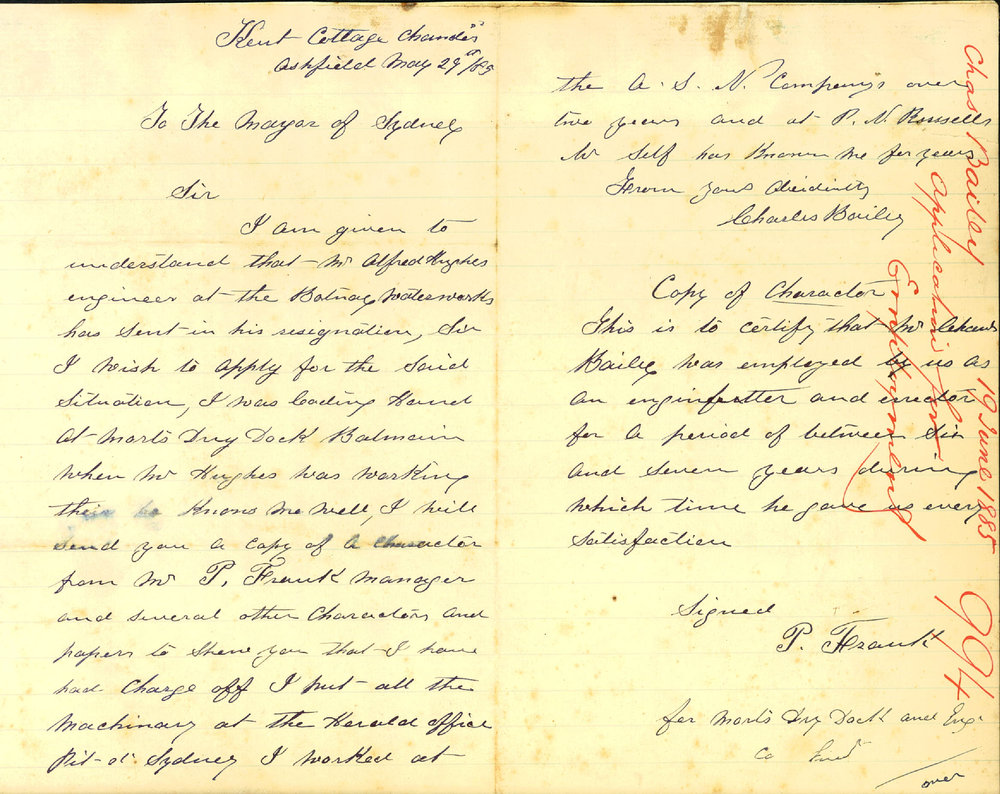 Kent Cottage Chandos St
Ashfield May 29th/85
To The Mayor of Sydney
Sir
I am given to
understand that Mr Alfred Hughes
engineer at the Botnay Waterworks
has sent in his resignation, Sir
I wish to apply for the Said
Situation, I was leading Hand
at Morts Dry Dock Balmain
when Mr Hughes was working
their he Knows me well, I will
Send you a copy of a charactor
from Mr P. Frank manager
and several other charactors and
papers to shew you that I have
had Charge off I put all the
machinary at the Herald office
Pit-St Sydney I worked at
the A. S. N. Companys over
two years and at P. N. Russells
Mr Self has Known me for years
From yours Obidintly
Charles Bailey
Copy of Charactor
This is to certify that Mr Charls
Bailey was employed by us as
an enginfitter and errector
for a period of between Six
and seven years during
which time he gave us every
satisfaction
Signed
P. Frank
for Morts Dry Dock and Eng.
Co
over
Chas Bailey
Application for
Employment
19 June 1885
994